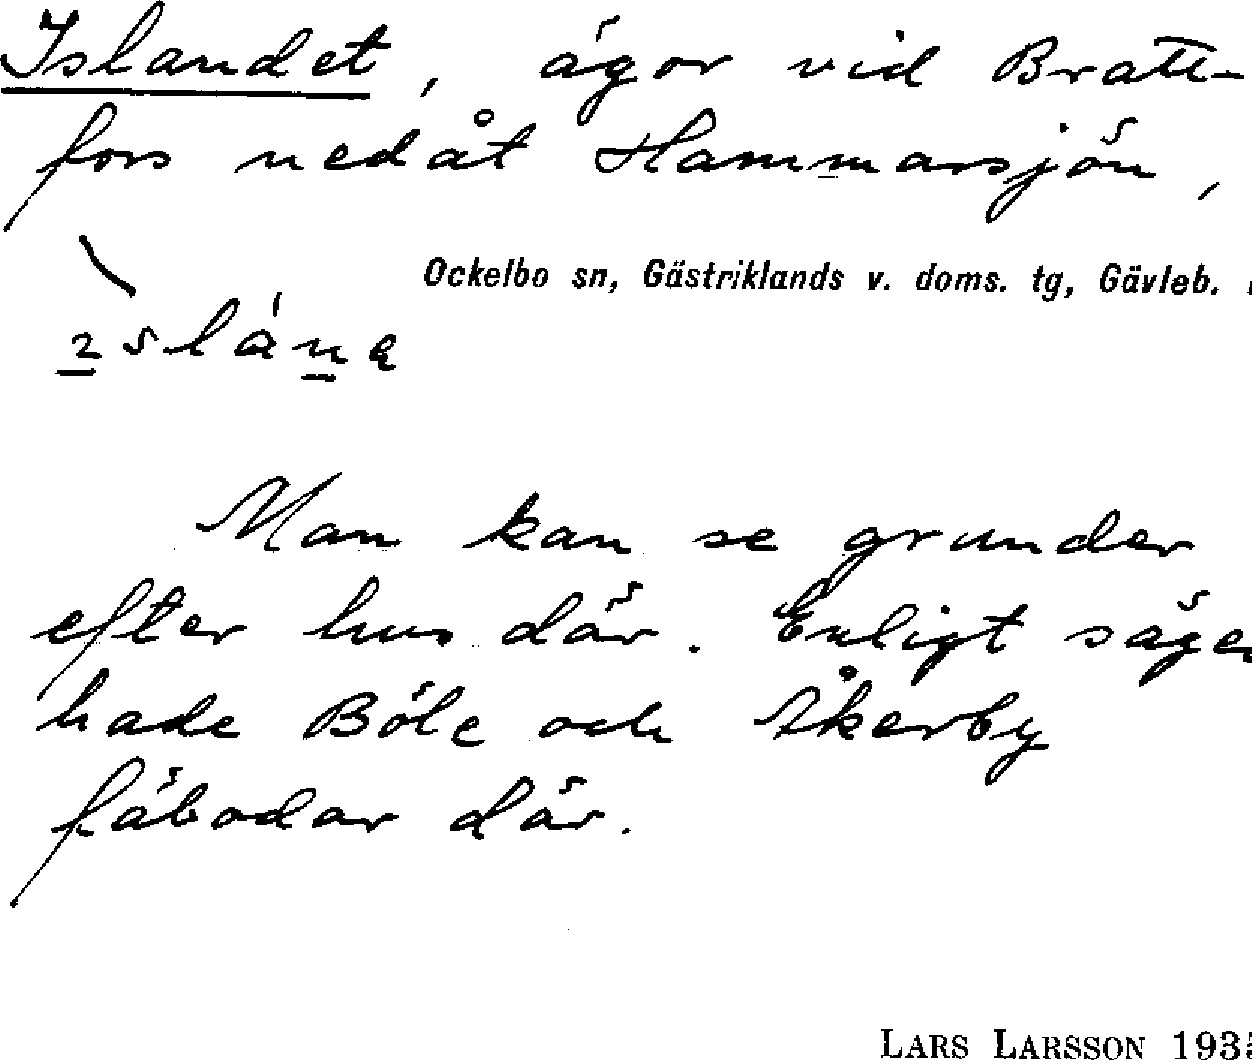 Islandet, ägor vid Bratt-
fors nedåt Hammarsjön,
Ockelbo sn, Gästriklands v. doms. tg, Gävleb.
Man kan se grunder
efter hus där. Enligt sägen
hade Böle och Åkerby
fäbodar där.
LARS LARSSON 193